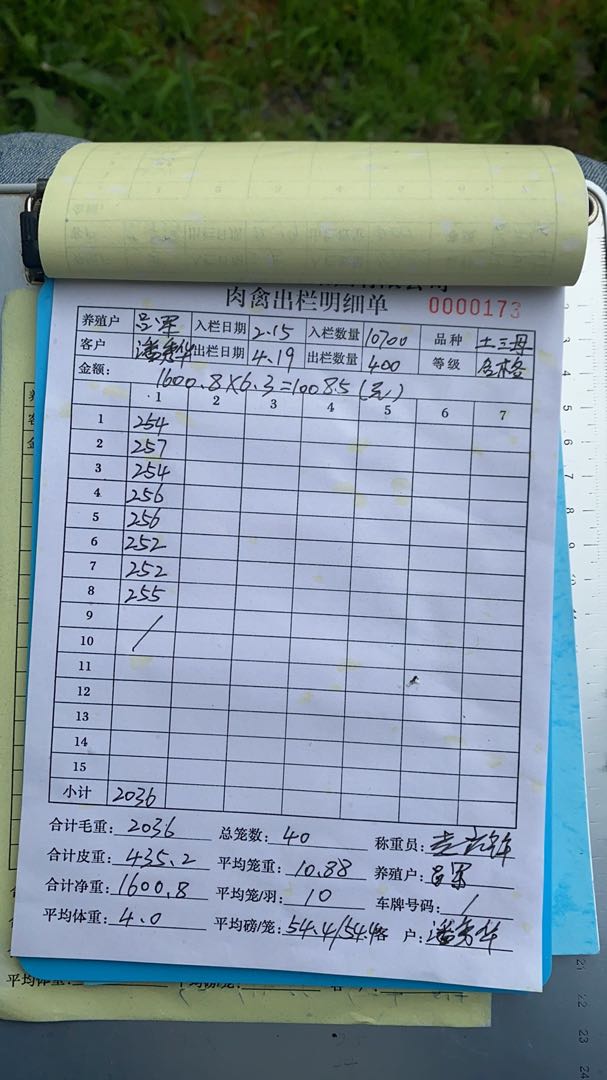 肉禽出栏明细单 0000173
养殖户 吕军 入栏日期 2.15 入栏数量 10700 品种 土三母
客户 潘秀华 出栏日期 4.19 出栏数量 400 等级 合格
金额: 1600.8×6.3=10085(元)
1 2 3 4 5 6 7
1 254
2 257
3 254
4 256
5 256
6 252
7 252
8 255
9 /
10
11
12
13
14
15
小计 2036
合计毛重: 2036 总笼数: 40 称重员:
合计皮重: 435.2 平均笼重: 10.88 养殖户: 吕军
合计净重: 1600.8 平均笼/羽: 10 车牌号码: /
平均体重: 4.0 平均磅/笼: 54.4/54.4 客 户: 潘秀华